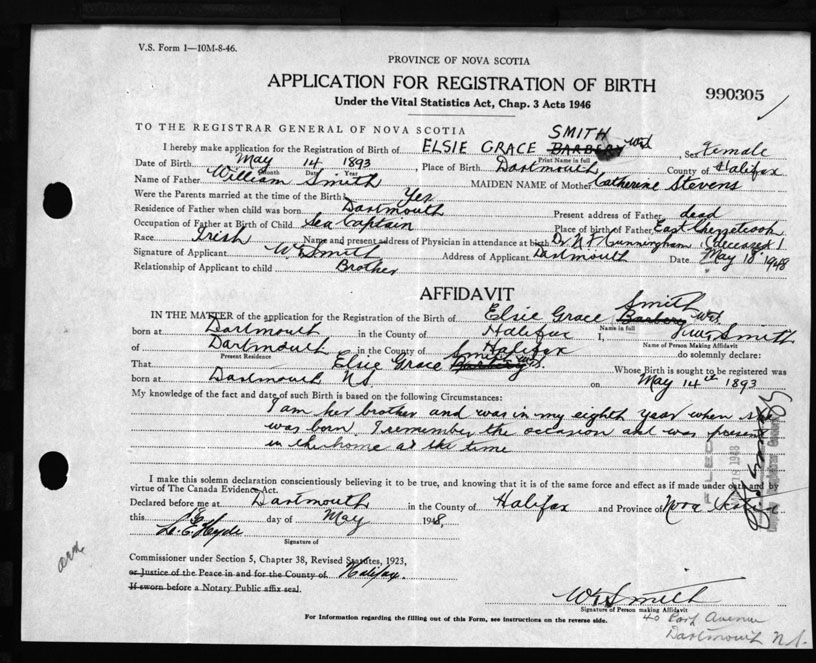 V.S. Form 1—10M-8-46.
PROVINCE OF NOVA SCOTIA
APPLICATION FOR REGISTRATION OF BIRTH
990305
Under the Vital Statistics Act, Chap. 3 Acts 1946
TO THE REGISTRAR GENERAL OF NOVA SCOTIA
SMITH
I hereby make application for the Registration of Birth of ELSIE GRACE BARBERY , Sex Female
Print Name in full
Date of Birth May 14 1893 , Place of Birth Dartmouth County of Halifax
Month Date Year
Name of Father William Smith MAIDEN NAME of Mother Catherine Stevens
Were the Parents married at the time of the Birth Yes
Residence of Father when child was born Dartmouth Present address of Father dead
Occupation of Father at Birth of Child Sea Captain Place of birth of Father East Chezzetcook
Race Irish Name and present address of Physician in attendance at birth Dr. Cunningham (deceased)
Signature of Applicant Smith Address of Applicant Dartmouth Date May 18 1948
Relationship of Applicant to child Brother
AFFIDAVIT
Smith
IN THE MATTER of the application for the Registration of Birth of Elsie Grace Barbery
Name in full
born at Dartmouth in the County of Halifax I, Smith
Name of Person Making Affidavit
of Dartmouth in the County of Halifax do solemnly declare:
Present Residence
Smith
That Elsie Grace Barbery Whose Birth is sought to be registered was
born at Dartmouth NS. on May 14th 1893
My knowledge of the fact and date of such Birth is based on the following Circumstances:
I am her brother and was in my eighth year when she
was born. I remember the occasion and was present
in the home at the time
FILED
I make this solemn declaration conscientiously believing it to be true, and knowing that it is of the same force and effect as if made under oath and by
virtue of The Canada Evidence Act.
Declared before me at Dartmouth in the County of Halifax and Province of Nova Scotia
this 18 day of May 1948,
Signature of
Commissioner under Section 5, Chapter 38, Revised Statutes, 1923,
or Justice of the Peace in and for the County of Halifax.
If sworn before a Notary Public affix seal.
Smith
Signature of Person making Affidavit
For Information regarding the filling out of this Form, see instructions on the reverse side.
Avenue
Dartmouth N.S.